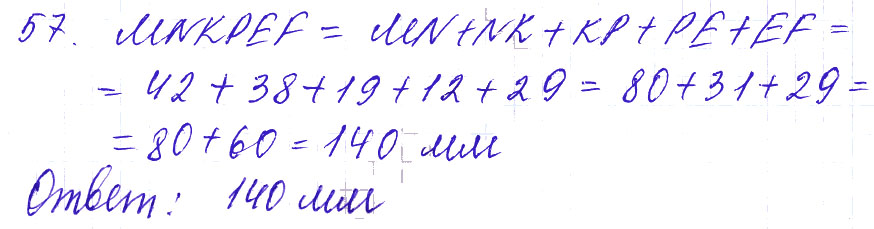 57. MNKPEF = MN+NK+KP+PE+EF =
= 42+38+19+12+29 = 80+31+29 =
= 80+60 = 140 мм
Ответ: 140 мм